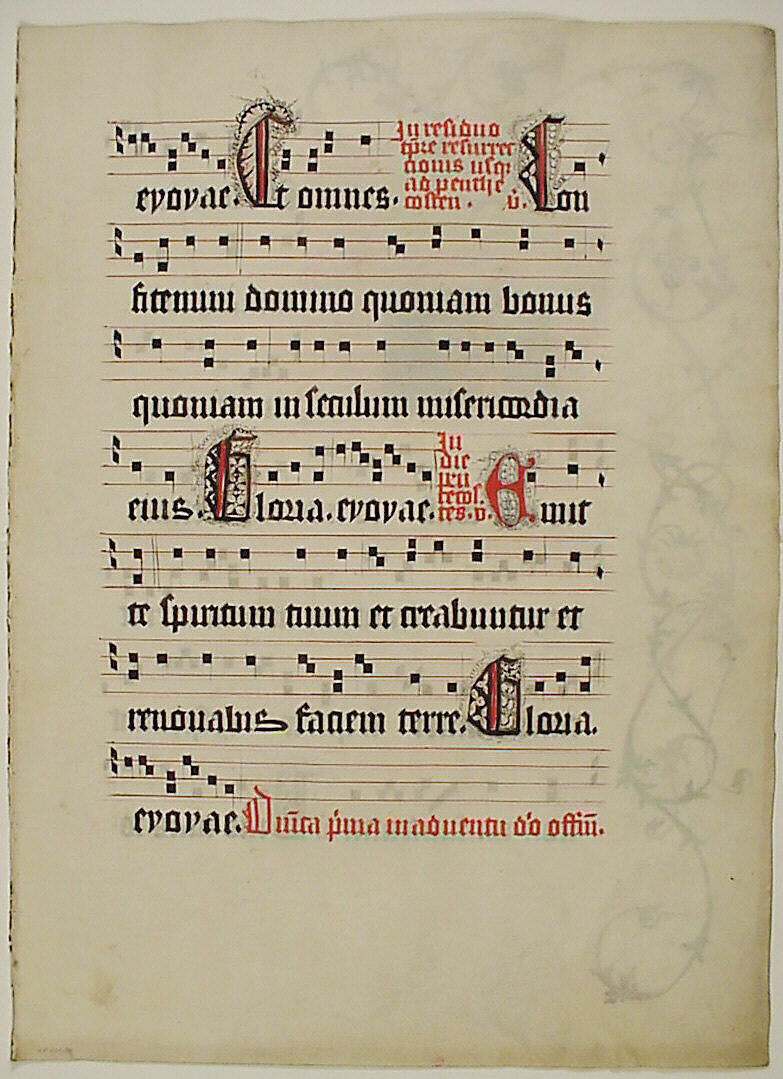 evovae. Et omnes. In residuo
tp̄re resurrec
cionis usq̨
ad penthe
costen. v̄. Con
fitemini domino quoniam bonus
quoniam in seculum misericordia
eius. Gloria. evovae. In
die
pen
tecos.
tes. v. Emit
te spiritum tuum et creabuntur et
renovabis faciem terre. Gloria.
evovae. Dn̄ica p̄ma in adventu d'o offm̄.